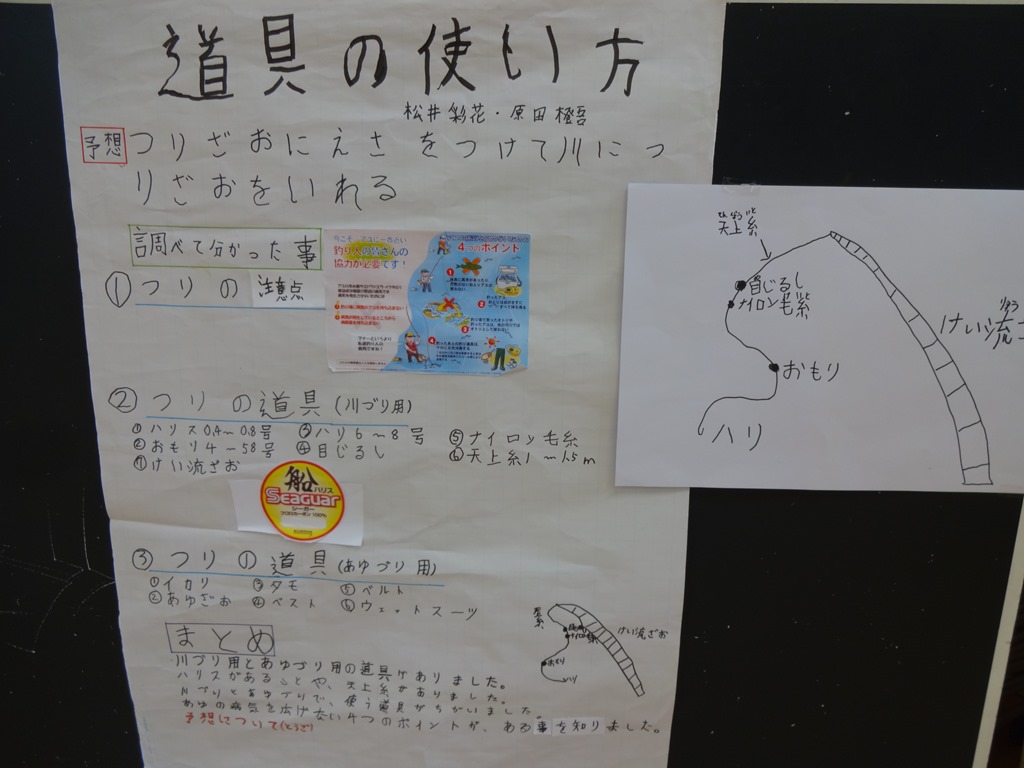 道具の使い方
松井彩花・原田橙吾
予想 つりざおにえさをつけて川につ
りざおをいれる
調べて分かった事
①つりの注意点
釣り人の皆さんの
協力が必要です!
4つのポイント
②つりの道具(川づり用)
①ハリス0.4~0.8号 ③ハリ6~8号 ⑤ナイロン毛糸
②おもり4~58号 ④目じるし ⑥天上糸1~1.5m
⑦けい流ざお
船
ハリス
Seaguar
シーガー
フロロカーボン100%
③つりの道具(あゆづり用)
①イカリ ③タモ ⑤ベルト
②あゆざお ④ベスト ⑥ウェットスーツ
まとめ
川づり用とあゆづり用の道具がありました。
ハリスがあることや、天上糸がありました。
川づりとあゆづりで、使う道具がちがいました。
あゆの病気を広げない4つのポイントが、ある事を知りました。
予想について
けい流ざお
おもり
ハリ
てんじょういと
天上糸
目じるし
ナイロン毛糸
おもり
ハリ
けい流